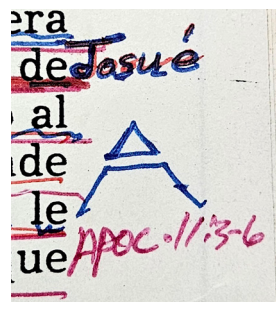 era
de Josué
o al
nde
le
ue APOC. 11:3-6